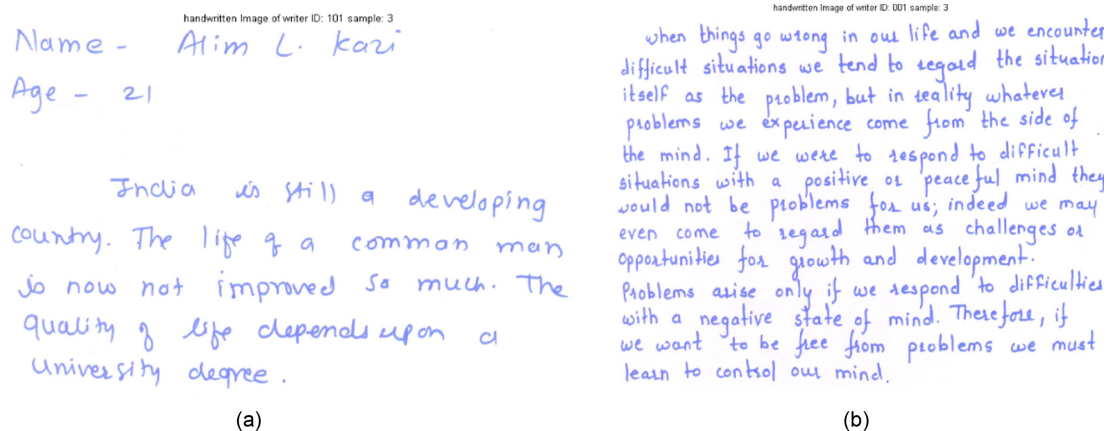 handwritten Image of writer ID: 101 sample: 3
Name - Alim L. Kazi
Age - 21
India is still a developing
country. The life of a common man
is now not improved so much. The
quality of life depends upon a
university degree.
(a)
handwritten Image of writer ID: 001 sample: 3
when things go wrong in our life and we encounter
difficult situations we tend to regard the situation
itself as the problem, but in reality whatever
problems we experience come from the side of
the mind. If we were to respond to difficult
situations with a positive or peaceful mind they
would not be problems for us; indeed we may
even come to regard them as challenges or
opportunities for growth and development.
Problems arise only if we respond to difficulties
with a negative state of mind. Therefore, if
we want to be free from problems we must
learn to control our mind.
(b)